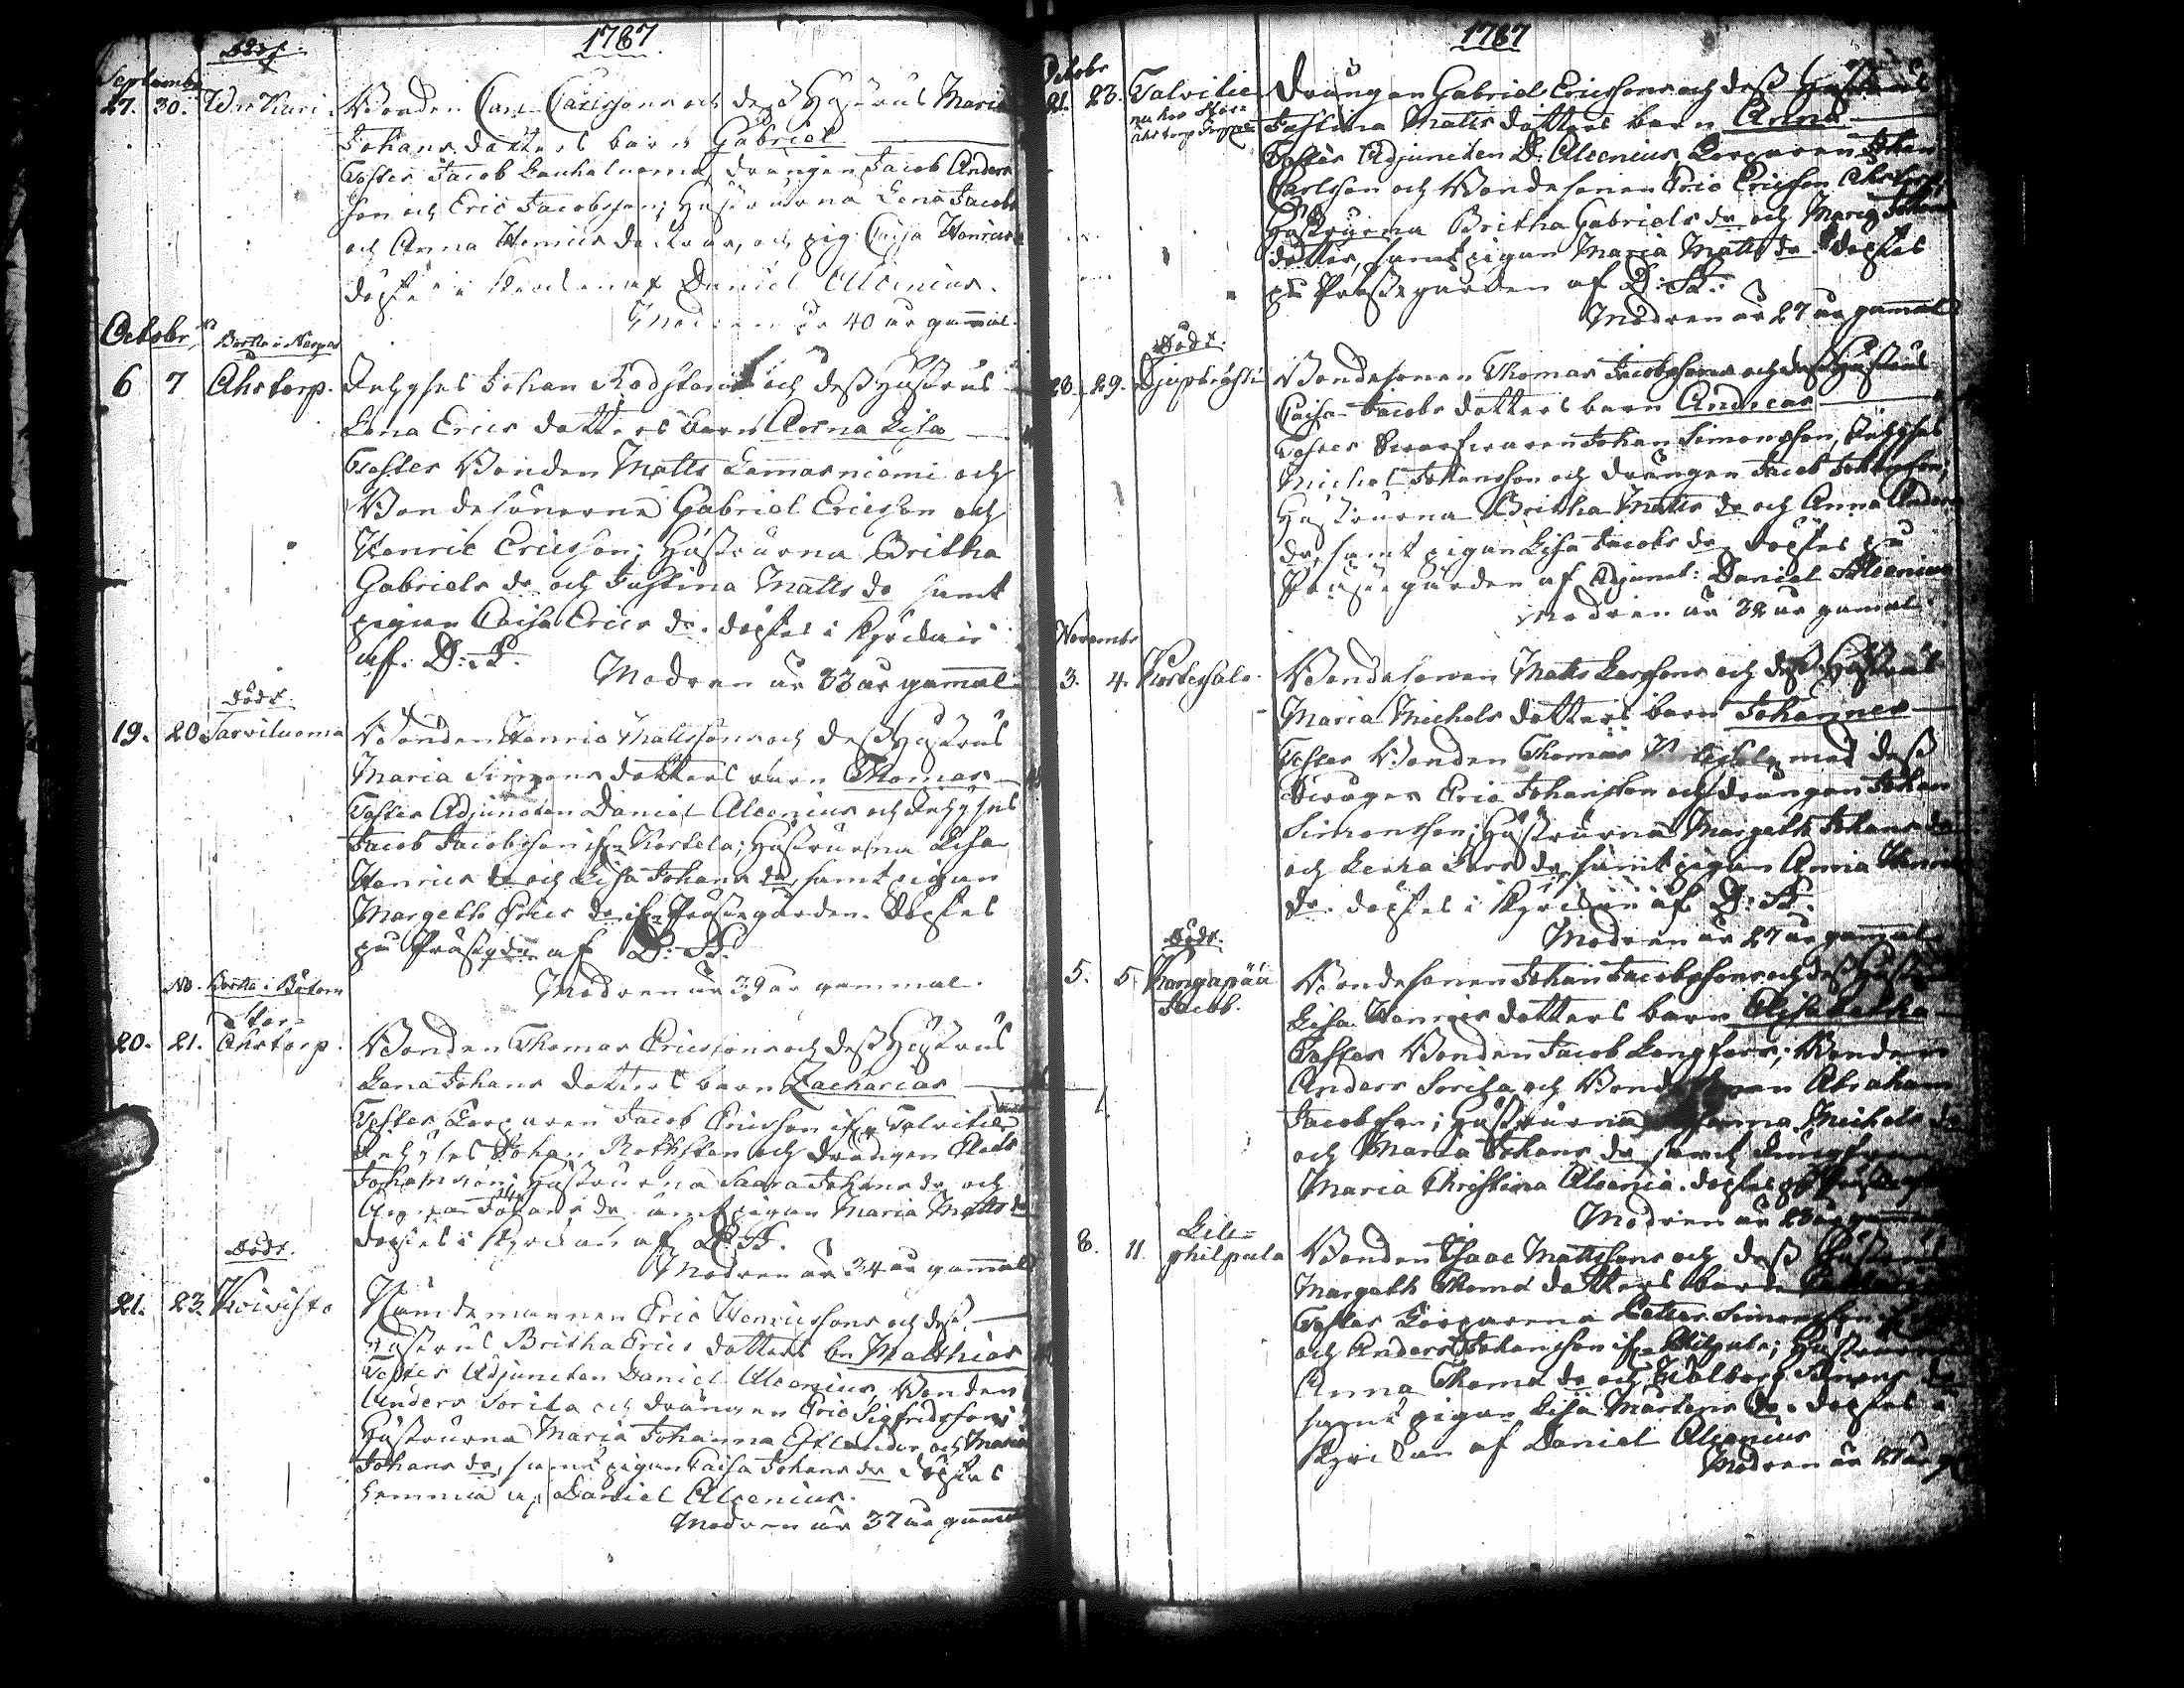 1787
Septembr
Död
27. 30. Wn Kuri Bonden Carl Carlssons och dess Hustrus Maria
Johans dotters barn Gabriel
Testes Jacob Lauhaluoma, drängen Jacob Anders
son och Eric Jacobsson; Hustrurna Lena Jacobs
och Anna Henrics döttrar, och pig. Caisa Henrics
döptes i Kyrckan af Daniel Alcenius.
Modren är 40 år gammal.
Octobr
Borta i Nerpes
6 7 Åhstorp. Inhyses Johan Rodstens och dess Hustrus
Lena Erics dotters barn Anna Lisa
Testes Bonden Matts Lammasniemi och
Bondesönerne Gabriel Ericsson och
Henric Ericsson; Hustrurna Britha
Gabriels dr och Justina Matts dr samt
pigan Caisa Erics dr. döptes i Kyrckan
af D: A.
Modren är 33 år gammal
död
19. 20 Sarviluoma Bonden Henric Mattssons och dess Hustrus
Maria Simons dotters barn Thomas
Testes Adjuncten Daniel Alcenius och Inhyses
Jacob Jacobsson ifr. Kortela; Hustrurna Lisa
Henrics dr och Lisa Johans dr, samt pigan
Margeth Erics dr ifr. Prästegården. Döptes
på Prästgdn af D: A.
Modren är 39 år gammal.
No. Borta i Bötom
Stor-
20. 21. Åhstorp. Bonden Thomas Ericssons och dess Hustrus
Lena Johans dotters barn Zacharias
Testes Corparen Jacob Ericsson ifr. Talvitie
Inhyses Johan Rothsten och drängen
Johansson; Hustrurna Saara Johans dr och
Johans dr samt pigan Maria Matts dr
döptes i Kyrckan af D: A.
Modren är 34 år gammal
Död.
21. 23. Koivisto Nämdemannen Eric Henricssons och dess
Hustrus Britha Erics dotters bn Matthias
Testes Adjuncten Daniel Alcenius, Bonden
Anders Sorila och drängen Eric Sigfridsson;
Hustrurna Maria Johanna och Maria
Johans dr, samt pigan Caisa Johans dr döptes
hemma af Daniel Alcenius.
Modren är 37 år gammal
1787
Octobr
21. 23. Talvitie Drängen Gabriel Ericssons och dess Hustrus
nu hos Stor
Åhstorp Justina Matts dotters barn Anna
Testes Adjuncten D. Alcenius, Corparen Johan
Carlsson och Bondesonen Eric Ericsson Åhstorp
Hustrurna Britha Gabriels dr och Maria Johans
dotter, samt pigan Maria Matts dr. döptes
på Prästegården af D: A.
Modren är 27 år gammal
Död.
28. 29. Bondesonen Thomas Jacobssons och dess Hustrus
Caisa Jacobs dotters barn Andreas
Testes Johan Simonsson, Inhyses
Michel Johansson och drängen Jacob Johansson;
Hustrurna Britha Matts dr och Anna Anders
dr, samt pigan Lisa Jacobs dr döptes på
Prästegården af Adjunct: Daniel Alcenius
Modren är 32 år gammal
Novembr
3. 4. Kortesalo. Bondesonen Matts Larssons och dess Hustrus
Maria Michels dotters barn Johannes
Testes Bonden Thomas med dess
Svåger Eric Johansson och drängen Johan
Simonsson; Hustrurna Margeth Johans dr
och Lars dr samt pigan Anna Henrics
dr. döptes i Kyrckan af D: A.
Modren är 27 år gammal
Död.
5. 5. Kangapää Bondesonen Johan Jacobssons och dess Hustrus
Jacob. Lisa Henrics dotters barn Elisabetha
Testes Bonden Jacob Longfors; Bonden
Anders Sorila och Bondesonen Abraham
Jacobsson; Hustrurna Michels dr
och Maria Johans dr samt Jungfrun
Maria Christina Alcenia. döptes på
Modren är 23 år gammal
Lill-
8. 11. philpula Bonden Isaac Mattssons och dess Hustrus
Margeth Thomæ dotters barn
Testes Corparena Petter Simonsson
och Anders Johansson ifr. Philpula; Hustrurna
Anna Thomæ dr och Walborg Simons dr
samt pigan Lisa Mårtens dr. döptes i
Kyrckan af Daniel Alcenius
Modren är 27 år